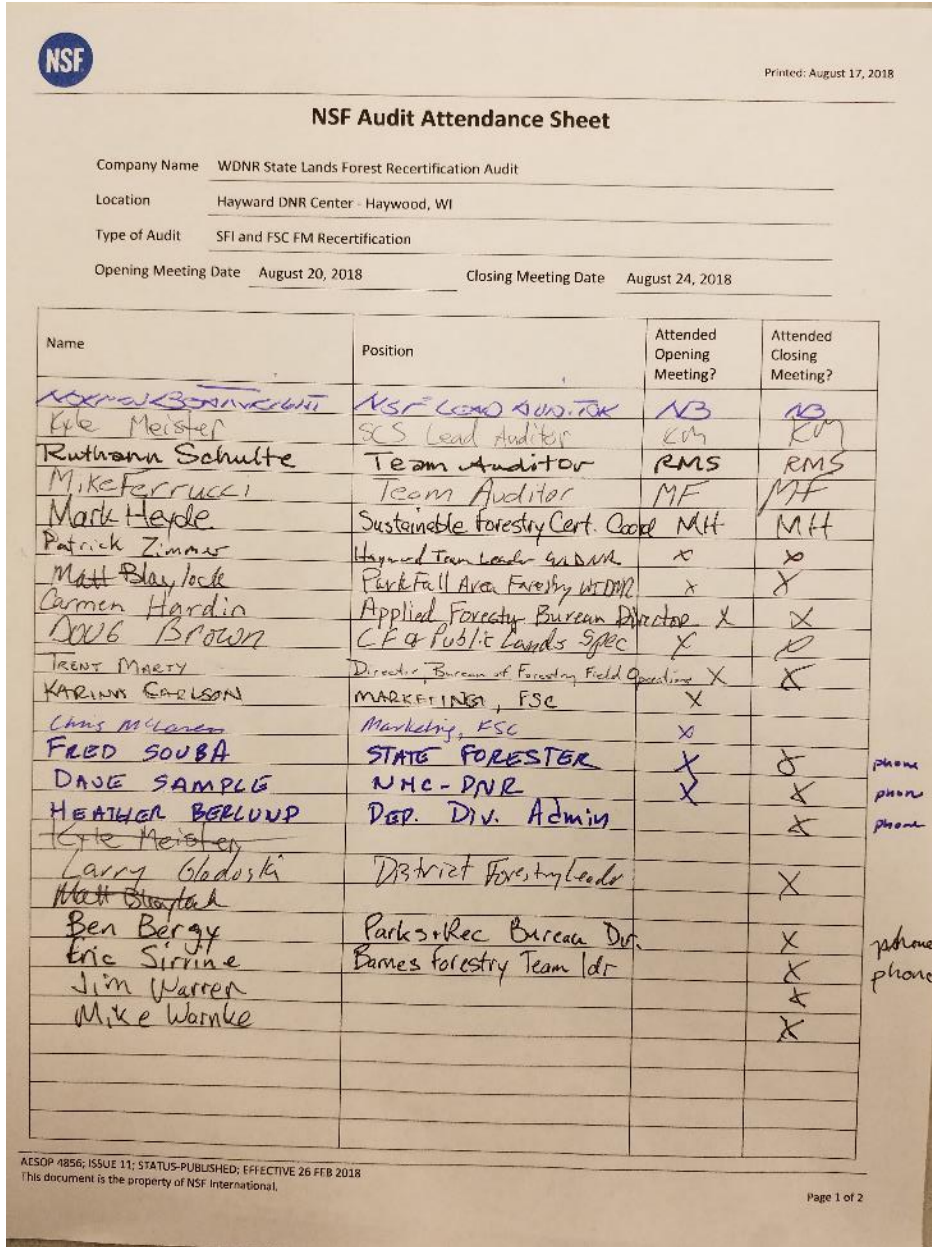 NSF
Printed: August 17, 2018
NSF Audit Attendance Sheet
Company Name WDNR State Lands Forest Recertification Audit
Location Hayward DNR Center - Haywood, WI
Type of Audit SFI and FSC FM Recertification
Opening Meeting Date August 20, 2018 Closing Meeting Date August 24, 2018
Name Position Attended Opening Meeting? Attended Closing Meeting?
NSF LEAD AUDITOR NB NB
Kyle Meister SCS Lead Auditor KM KM
Ruthann Schulte Team Auditor RMS RMS
Mike Ferrucci Team Auditor MF MF
Mark Heyde Sustainable Forestry Cert. Coord MH MH
Patrick Zimmer Hayward Team Leader WDNR X X
Matt Blaylock Park Fall Area Forestry WDNR X X
Carmen Hardin Applied Forestry Bureau Director X X
DOUG BROWN CF & Public Lands Spec X X
TRENT MARTY Director, Bureau of Forestry Field Operations X X
KARINA CARLSON MARKETING, FSC X
Chris McLaren Marketing, FSC X
FRED SOUBA STATE FORESTER X X phone
DAVE SAMPLE NHC-DNR X X phone
HEATHER BERLUND DEP. Div. Admin X phone
Kyle Meister
Larry Glodoski District Forestry Leader X
Matt Blaylock
Ben Bergy Parks+Rec Bureau Dir. X phone
Eric Sirrine Barnes Forestry Team ldr X phone
Jim Warren X
Mike Warnke X
AESOP 4856; ISSUE 11; STATUS-PUBLISHED; EFFECTIVE 26 FEB 2018
This document is the property of NSF International.
Page 1 of 2